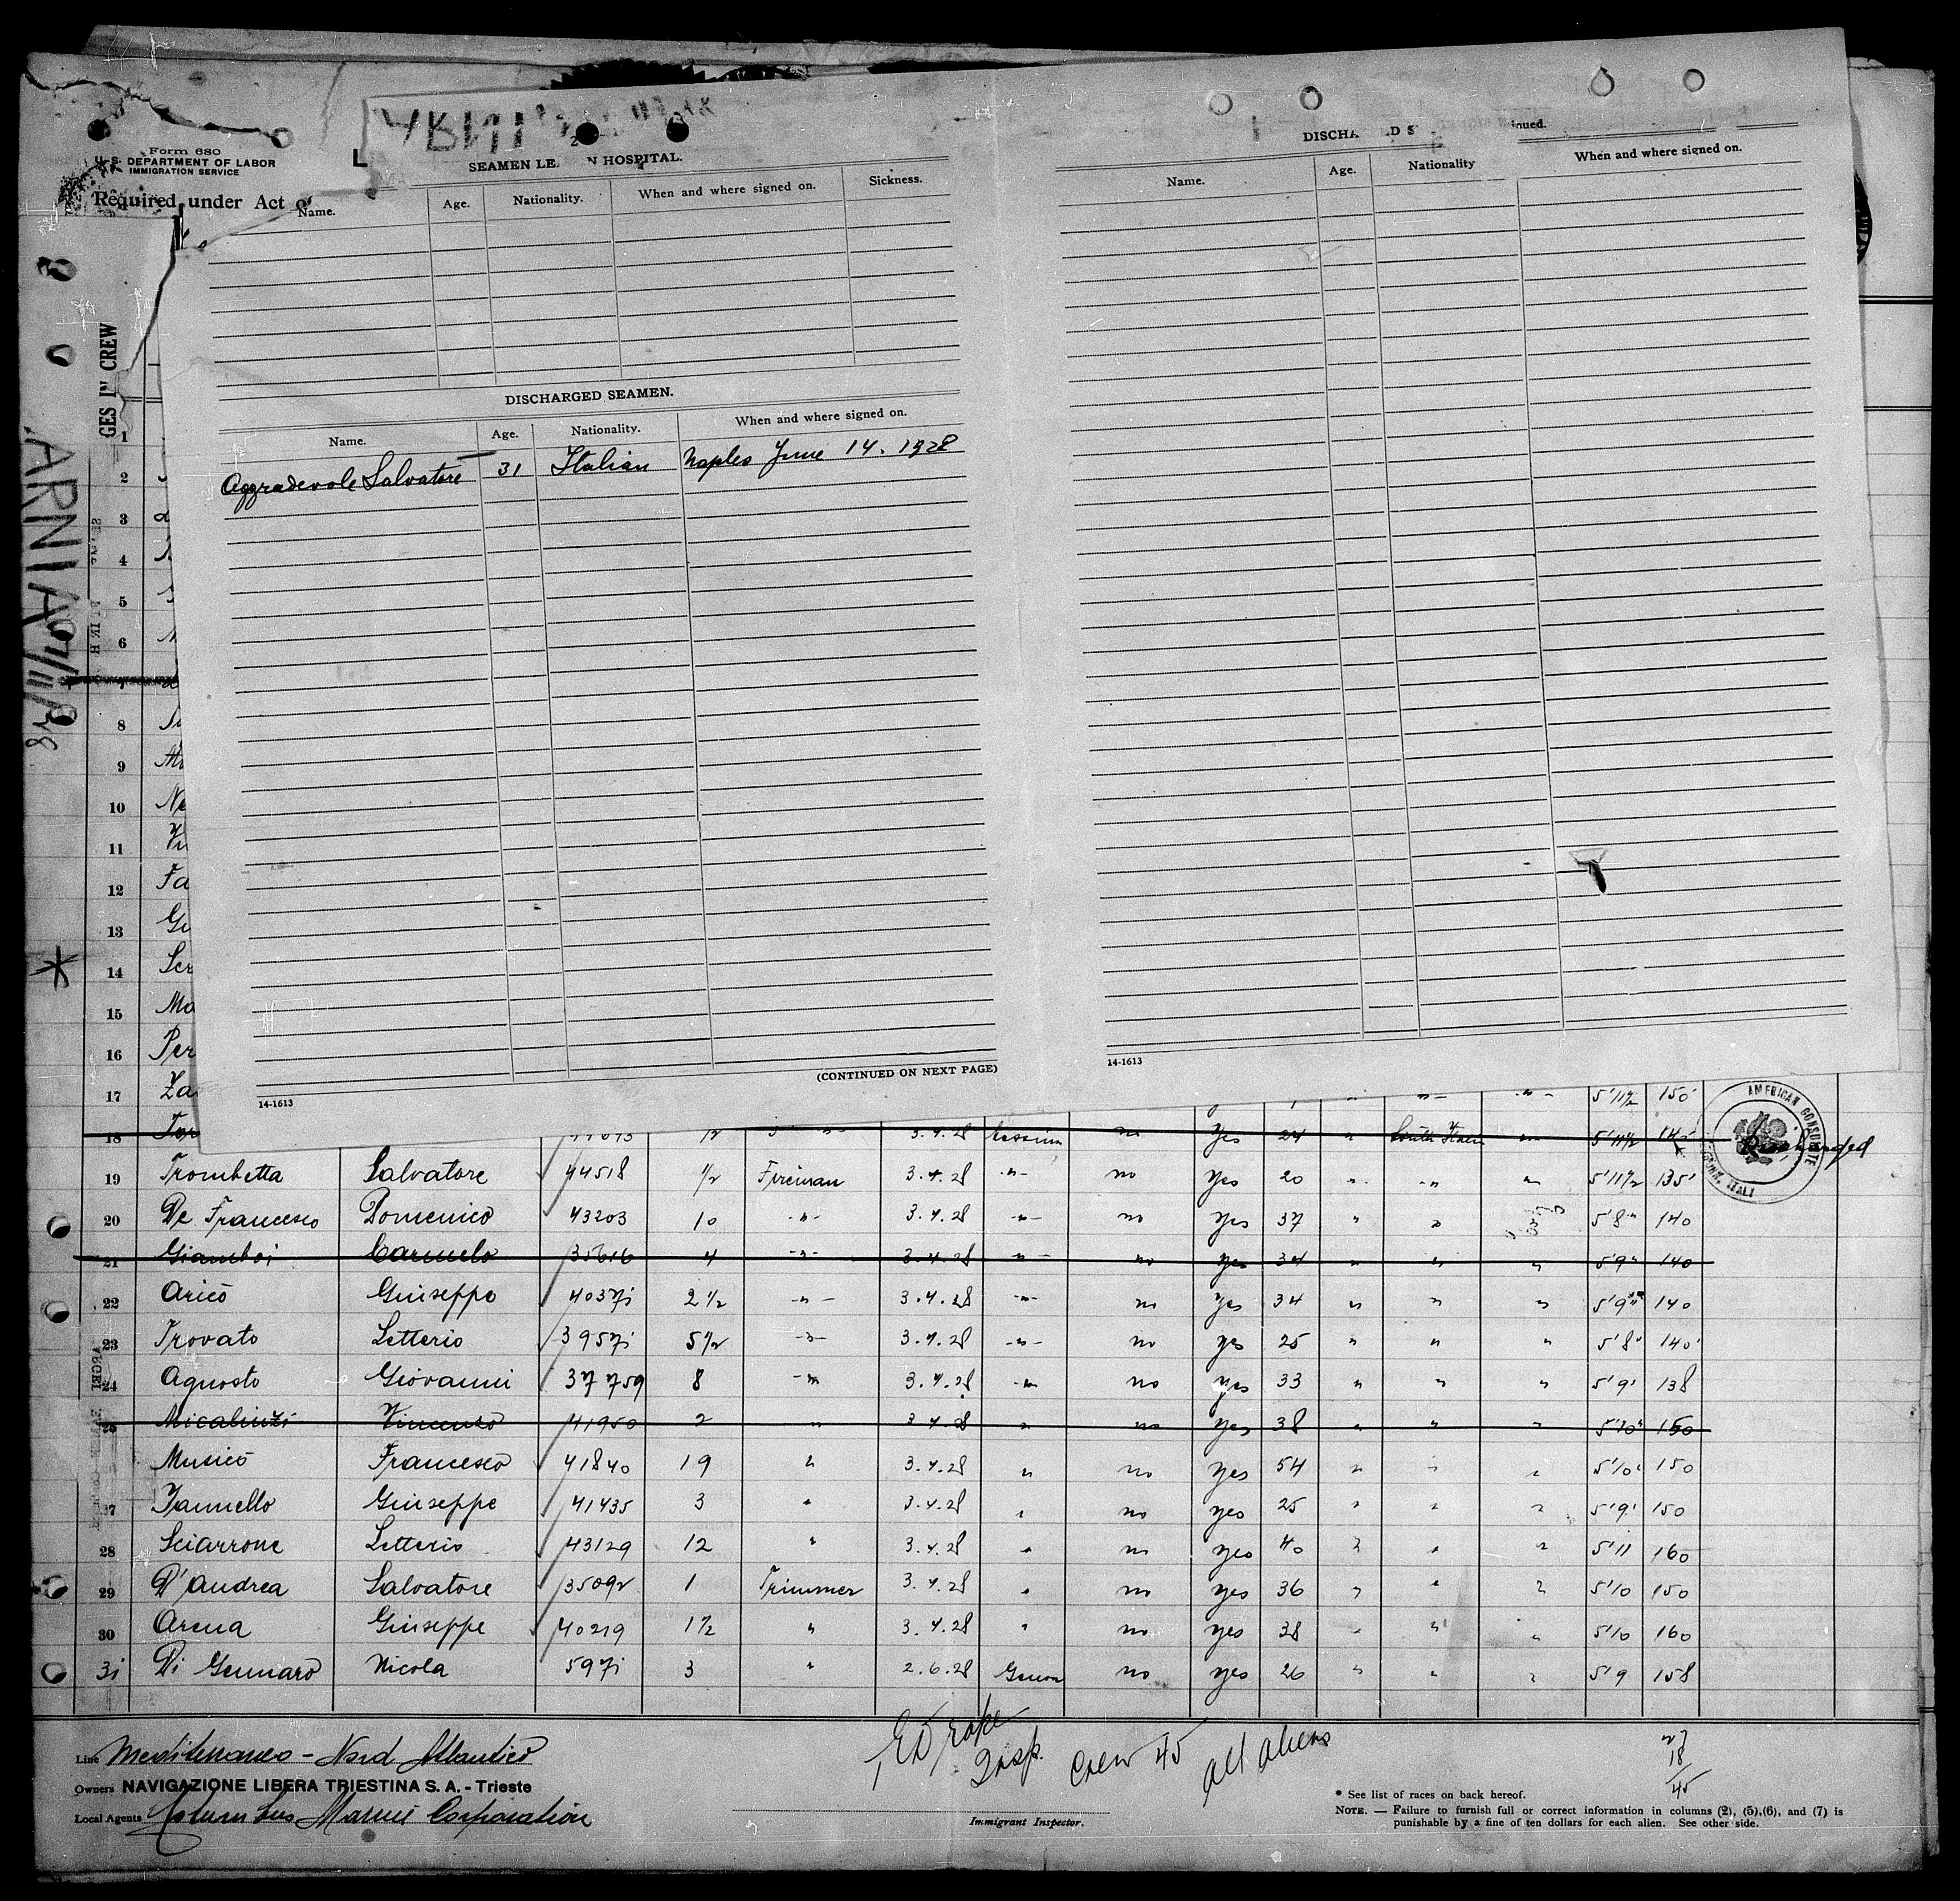 Form 680
U. S. DEPARTMENT OF LABOR
IMMIGRATION SERVICE
Required under Act
GES IN CREW
ARNIA
2
SEAMEN HOSPITAL.
Name. Age. Nationality. When and where signed on. Sickness.
DISCHARGED SEAMEN.
Name. Age. Nationality. When and where signed on.
Aggradevole Salvatore 31 Italian Naples June 14. 1928
(CONTINUED ON NEXT PAGE)
14-1613
Name. Age. Nationality When and where signed on.
14-1613
1
2
3
4
5
6
8
9
10
11
12 Fa
13
14
15 Mo
16 Per
17 Za 5'11½ 150
18 ½ 3.4.28 Messina no Yes 24 " South Ital 5'11½
AMERICAN CONSULATE
Discharged
19 Trombetta Salvatore 44518 ½ Fireman 3.4.28 -"- no Yes 20 " " " 5'11½ 135
20 De Francesco Domenico 43203 10 -"- 3.4.28 -"- no Yes 37 " " 5'8" 140
21 Giamboi Carmelo 35616 4 -"- 3.4.28 -"- no yes 34 " " " 5'9" 140
22 Aricò Giuseppe 40371 2½ -"- 3.4.28 -"- no Yes 34 " " " 5'9" 140
23 Trovato Letterio 39571 5½ -"- 3.4.28 -"- no yes 25 " " " 5'8" 140
24 Agnosto Giovanni 37759 8 -"- 3.4.28 -"- no yes 33 " " " 5'9' 138
25 Micalizzi Vincenzo 41950 2 " 3.4.28 " no yes 38 " " " 5'10" 150
Musicò Francesco 41840 19 " 3.4.28 " no yes 54 " " " 5'10" 150
7 Iannello Giuseppe 41435 3 " 3.4.28 " no yes 25 " " " 5'9' 150
28 Sciarrone Letterio 43129 12 " 3.4.28 " no yes 40 " " " 5'11 160
29 D'Andrea Salvatore 35092 1 Trimmer 3.4.28 " no yes 36 " " " 5'10 150
30 Arena Giuseppe 40219 1½ " 3.4.28 " no yes 38 " " " 5'10 160
31 Di Gennaro Nicola 5971 3 " 2.6.28 Genoa no yes 26 " " " 5'9 158
Line Mediterraneo - Nord Atlantico
Owners NAVIGAZIONE LIBERA TRIESTINA S. A. - Trieste
Local Agents Columbus Marine Corporation
Insp. Crew 45 all aliens
Immigrant Inspector.
27
18
45
* See list of races on back hereof.
NOTE. — Failure to furnish full or correct information in columns (2), (5),(6), and (7) is
punishable by a fine of ten dollars for each alien. See other side.